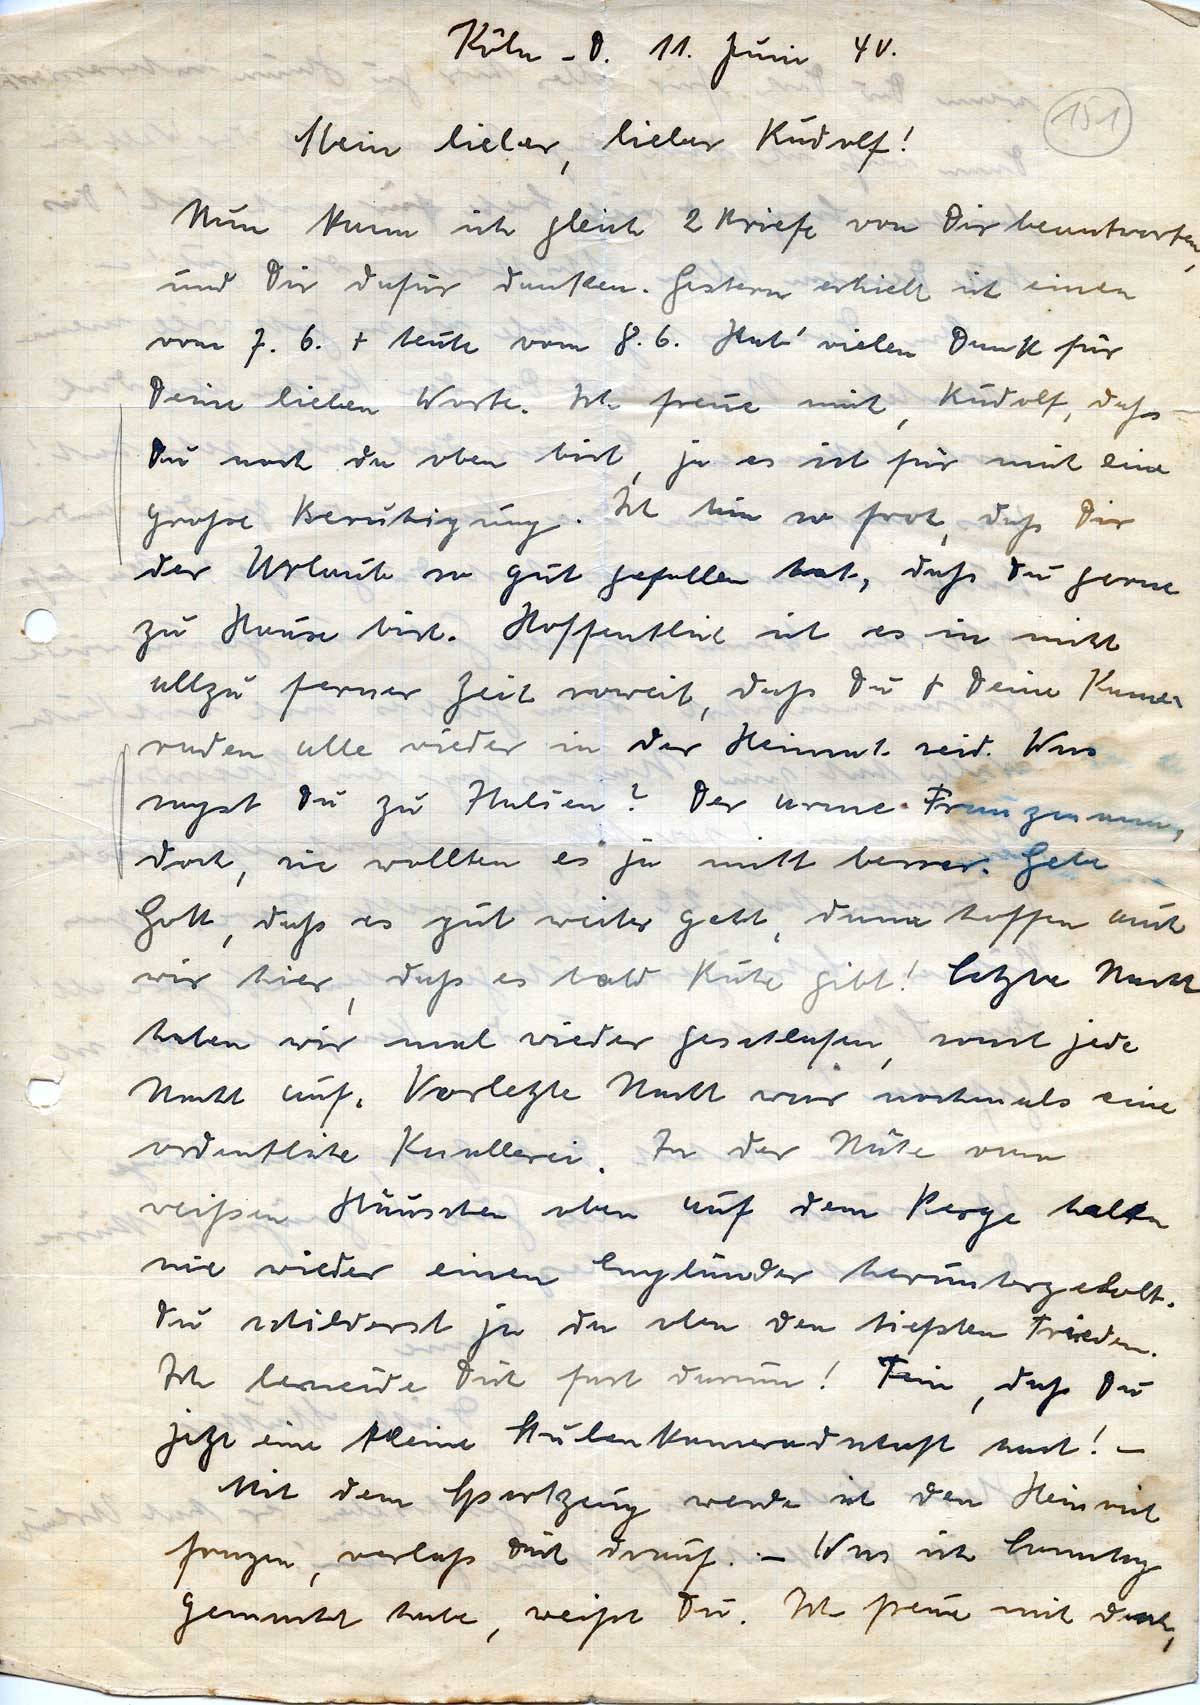 Köln - D. 11. Juni 40.
151
Mein lieber, lieber Rudolf!
Nun kann ich gleich 2 Briefe von Dir beantworten,
und Dir dafür danken. Gestern erhielt ich einen
vom 7. 6. + heute vom 8. 6. Hab' vielen Dank für
Deine lieben Worte. Ich freue mich, Rudolf, daß
Du noch da oben bist, ja es ist für mich eine
große Beruhigung. Ich bin so froh, daß Dir
der Urlaub so gut gefallen hat, daß Du gerne
zu Hause bist. Hoffentlich ist es in nicht
allzu ferner Zeit soweit, daß Du + Deine Kame-
raden alle wieder in der Heimat seid. Was
sagst Du zu Italien? Der arme Franzmann,
doch, sie wollten es ja nicht besser. Gebe
Gott, daß es gut weiter geht, dann hoffen auch
wir hier, daß es bald Ruhe gibt! Letzte Nacht
haben wir mal wieder geschlafen, sonst jede
Nacht auf. Vorletzte Nacht war nochmals eine
ordentliche Knallerei. In der Nähe vom
weißen Häuschen oben auf dem Berge haben
sie wieder einen Engländer heruntergeholt.
Du schilderst ja da oben den tiefsten Frieden.
Ich beneide Dich fast darum! Fein, daß Du
jetzt eine kleine Stubenkameradschaft hast! -
Mit dem Sportzeug werde ich den Heinrich
fragen, verlaß Dich drauf. - Was ich Sonntag
gemacht habe, weißt Du. Ich freue mich doch,